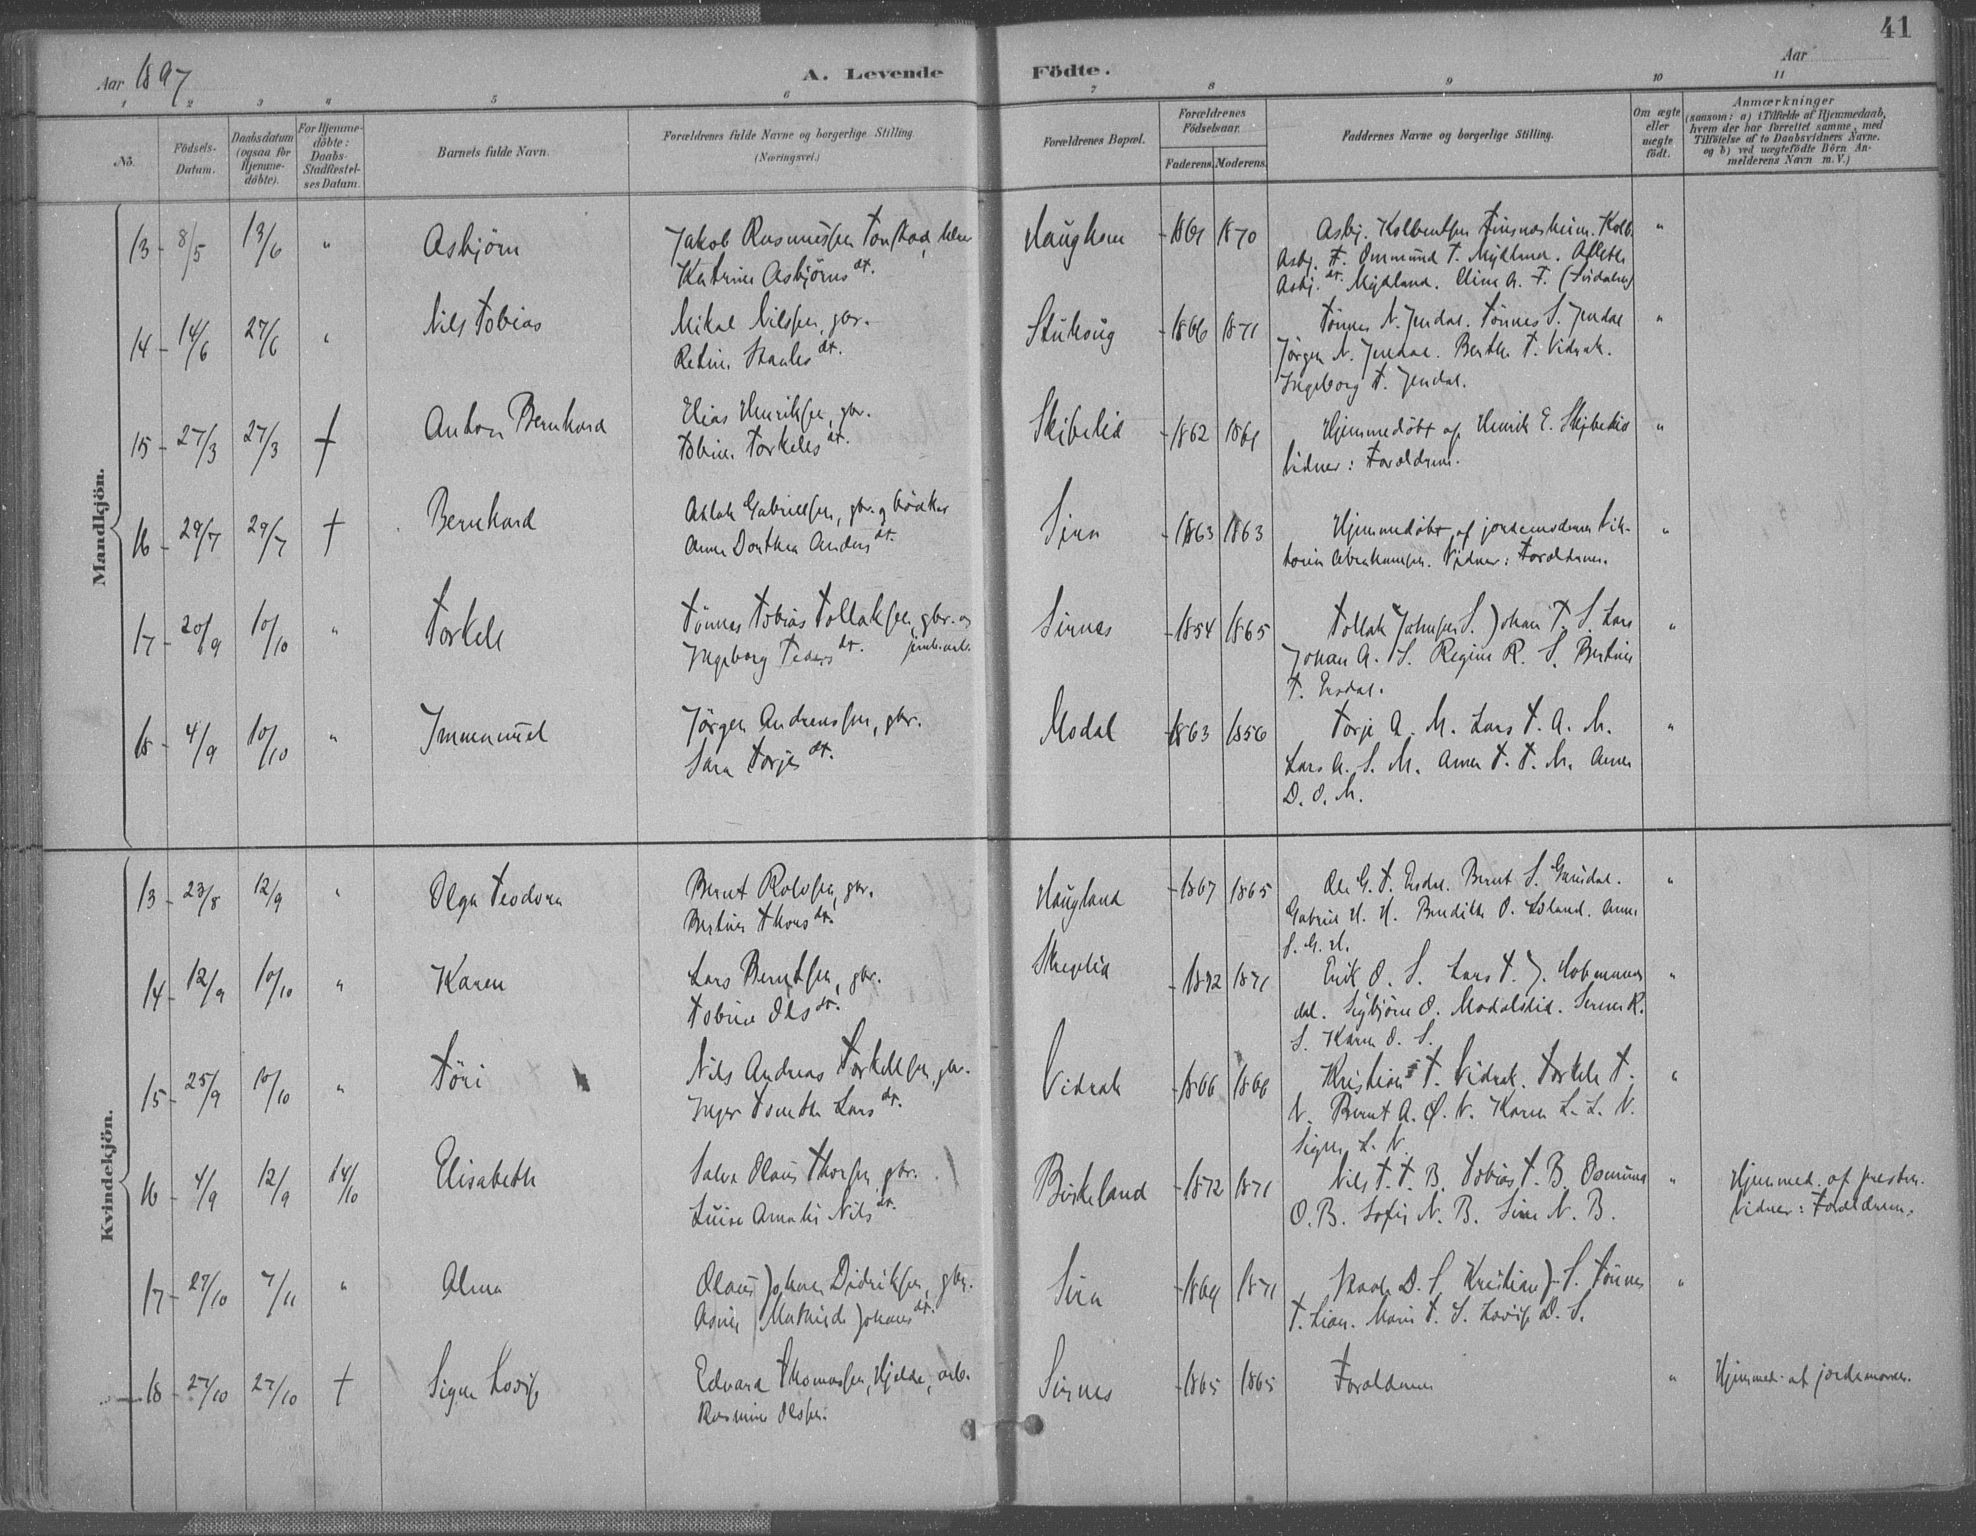 41
Aar 1897
A. Levende Födte.
Aar
1 2 3 4 5 6 7 8 9 10 11
No. Födsels-Datum. Daabsdatum (ogsaa for Hjemme-döbte). For Hjemme-döbte: Daabs-Stadfæstel-ses Datum. Barnets fulde Navn. Forældrenes fulde Navne og borgerlige Stilling. (Næringsvei.) Forældrenes Bopæl. Forældrenes Födselsaar. Faderens. Moderens. Faddernes Navne og borgerlige Stilling. Om ægte eller uægte födt. Anmærkninger (saasom: a) i Tilfælde af Hjemmedaab, hvem der har forrettet samme, med Tilföielse af to Daabsvidners Navne. og b) ved uægtefödte Börn An-melderens Navn m. V.)
Mandkjön.
13 - 8/5 13/6 " Asbjörn Jakob Rasmussen Tonstad Haughom - 1870 "
Katrine Asbjörns dt.
Asbj. T. Ommund T. Mydland.
Asbj. dt. Mydland. Eline A. T. (Sirdalen)
14 - 14/6 27/6 " Nils Tobias Mikal Nilssen, gbr. - 1866 1871 Tönnes N. Jendal. Tönnes S. Jendal "
Jörgen N. Jendal. Berthe T. Vidrak.
Ingeborg T. Jendal.
15 - 27/3 27/3 † Anton Bernhard Elias Henriksen, gbr. Skibelid - 1862 Hjemmedöbt af Henrik E. Skibelid "
Tobine Torkels dt. Vidner: Forældrene.
16 - 29/7 29/7 † Bernhard Aslak Gabrielsen, gbr. og bödker Sira - 1863 1863 Hjemmedöbt af jordemoderen Vik-
Anne Dorthea Anders dt. toria Abrahamsen. Vidner: Forældrene.
17 - 20/9 10/10 " Torkel Tönnes Tobias Tollaksen, gbr. og Sirnes - 1854 1865 Tollak Johnsen S. Johan T. S. Lars "
Ingeborg Teders dt. Johan A. S. Regine R. S. Bertine
T. Ersdal.
18 - 4/9 10/10 " Immanuel Jörgen Andreassen, gbr. Modal - 1863 1856 Torje A. M. Lars T. A. M. "
Sara Torjes dt. Lars A. S. M. Anne T. T. M. Anne
D. O. M.
Kvindekjön.
13 - 23/8 12/9 " Olga Teodora Bernt Rolvsen, gbr. Haugland - 1867 1865 Ole G. T. Ersdal. Bernt S. "
Bertine Thores dt. Gabriel H. H. Benditte O. Anne
S. G. H.
14 - 12/9 10/10 " Karen Lars Berntsen, gbr. - 1872 1871 Erik O. S. Lars T. J. "
Tobine Ols dt. dal. Sigbjörn O. Modalslid. Serine R.
S. Karen O. S.
15 - 25/9 10/10 " Töri Nils Andreas Torkelsen, gbr. Vidrak - 1866 Kristian T. Vidrak. Torkel T. "
Inger Lars dt. V. Bernt A. Ø. V. Karen L. L. V.
Signe L. V.
16 - 4/9 12/9 14/10 Elisabeth Salve Olaus Thorsen, gbr. Birkeland - 1872 1871 Nils T. T. B. Tobias T. B. Osmund " Hjemmed. af presten.
Luise Amalie Nils dt. O. B. Sofie N. B. Sine N. B. Vidner: Forældrene.
17 - 27/10 7/11 " Alma Olaus Johan Didriksen, gbr. Sira - 1869 1871 D. S. Kristian J. S. Tönnes "
Asine Mathilde Johans dt. T. Lian. Marie T. S. Lovise D. S.
18 - 27/10 27/10 † Signe Lovise Edvard Thomassen, Hjelde, arb. Sirnes - 1865 1865 Forældrene " Hjemmed. af jordemoren.
Rasmine Olsen.